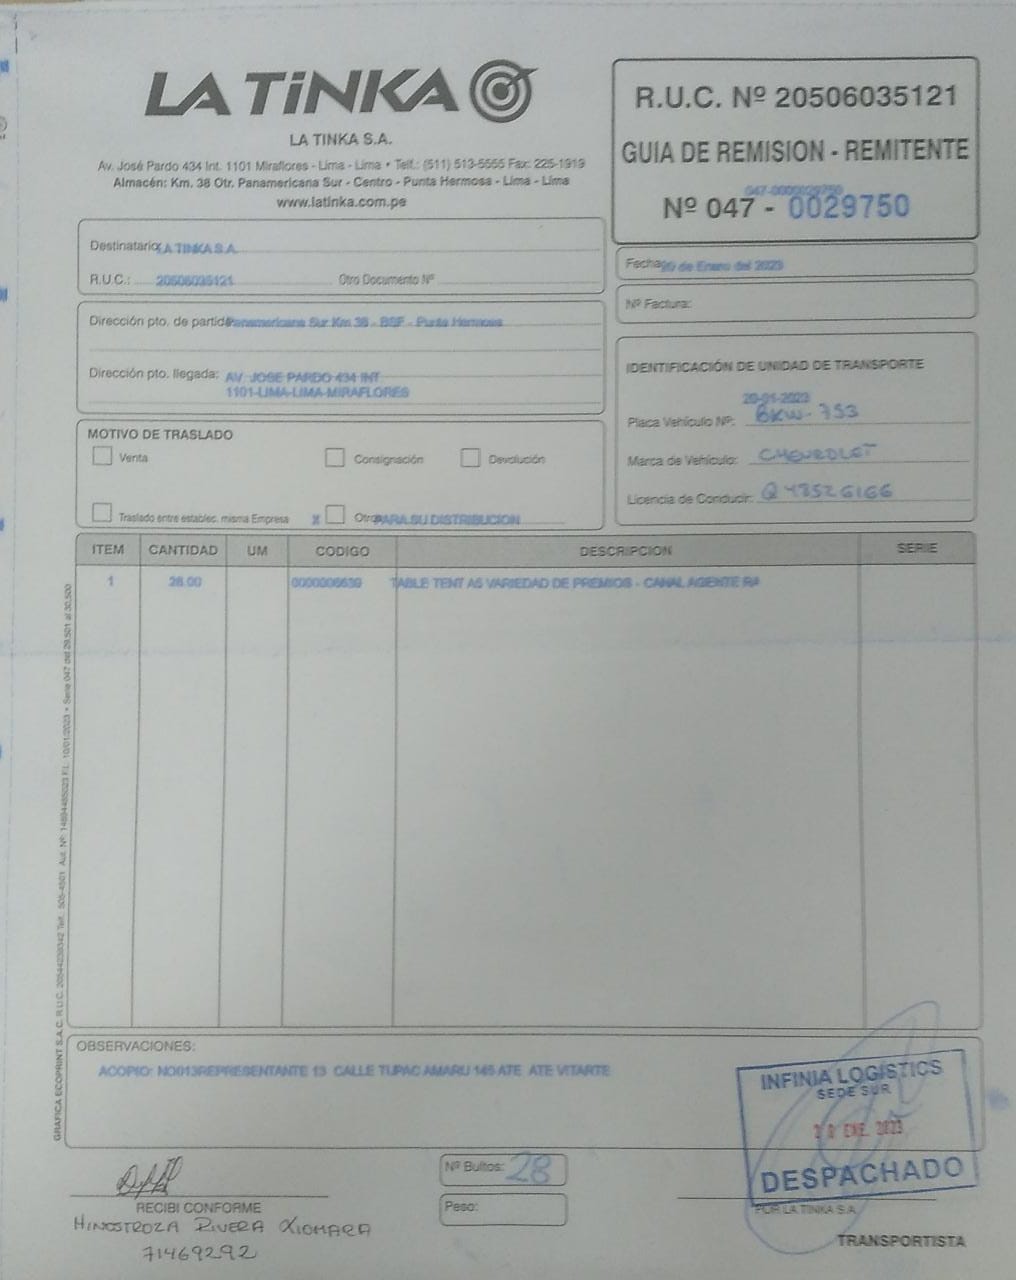 LA TiNKA
LA TINKA S.A.
Av. José Pardo 434 Int. 1101 Miraflores - Lima - Lima • Telf.: (511) 513-5555 Fax: 225-1919
Almacén: Km. 38 Otr. Panamericana Sur - Centro - Punta Hermosa - Lima - Lima
www.latinka.com.pe
R.U.C. Nº 20506035121
GUIA DE REMISION - REMITENTE
047-0000029750
Nº 047 - 0029750
Destinatario: LA TINKA S.A.
R.U.C.: 20506035121 Otro Documento Nº
Fecha: 20 de Enero del 2023
Nº Factura:
Dirección pto. de partida: Panamericana Sur Km 38 - BSF - Punta Hermosa
Dirección pto. llegada: AV. JOSE PARDO 434 INT.
1101-LIMA-LIMA-MIRAFLORES
IDENTIFICACIÓN DE UNIDAD DE TRANSPORTE
20-01-2023
Placa Vehículo Nº: BKW-753
Marca de Vehículo: CHEVROLET
Licencia de Conducir: Q48526166
MOTIVO DE TRASLADO
Venta Consignación Devolución
Traslado entre establec. misma Empresa X Otros PARA SU DISTRIBUCION
ITEM CANTIDAD UM CODIGO DESCRIPCION SERIE
1 28.00 0000006639 TABLE TENT A5 VARIEDAD DE PREMIOS - CANAL AGENTE RA
GRAFICA ECOPRINT S.A.C. R.U.C. 20544238342 Telf. 505-4501 Aut. Nº: 14894485023 F.I. 10/01/2023 • Serie 047 del 29,501 al 30,500
OBSERVACIONES:
ACOPIO: NO013REPRESENTANTE 13 CALLE TUPAC AMARU 145 ATE ATE VITARTE
INFINIA LOGÍSTICS
SEDE SUR
20 ENE. 2023
DESPACHADO
Nº Bultos: 28
Peso:
RECIBI CONFORME
HINOSTROZA RIVERA XIOMARA
71469292
POR LA TINKA S.A.
TRANSPORTISTA